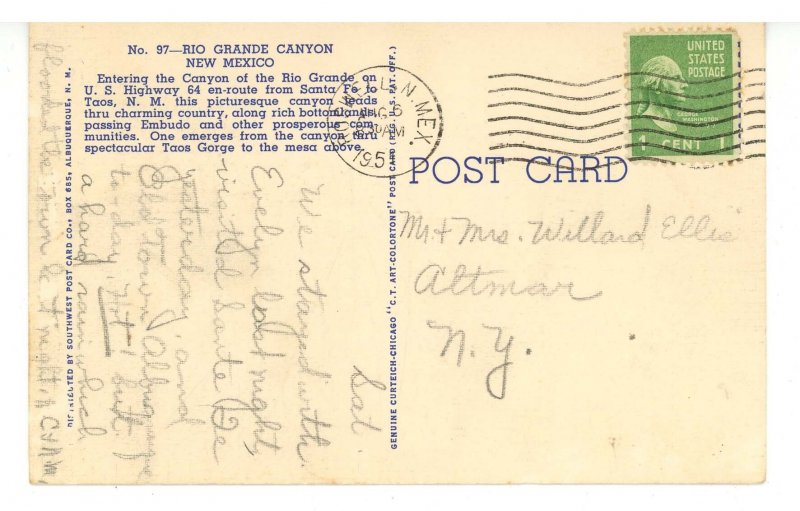 No. 97—RIO GRANDE CANYON
NEW MEXICO
Entering the Canyon of the Rio Grande on
U. S. Highway 64 en-route from Santa Fe to
Taos, N. M. this picturesque canyon leads
thru charming country, along rich bottomlands,
passing Embudo and other prosperous com-
munities. One emerges from the canyon thru
spectacular Taos Gorge to the mesa above.
DISTRIBUTED BY SOUTHWEST POST CARD CO., BOX 685, ALBUQUERQUE, N. M.
GENUINE CURTEICH-CHICAGO "C. T. ART-COLORTONE" POST CARD (REG. U. S. PAT. OFF.)
ROSWELL N. MEX.
AUG 5
30 AM
195
UNITED
STATES
POSTAGE
GEORGE
WASHINGTON
1 CENT 1
POST CARD
Mr + Mrs. Willard Ellis
Altmar
N.Y.
Sat
We stayed with
Evelyn last night,
visited Sante Fe
yesterday and
Old town Albuquerque
to-day. Hot! but
a hard rain which
flooded the
night